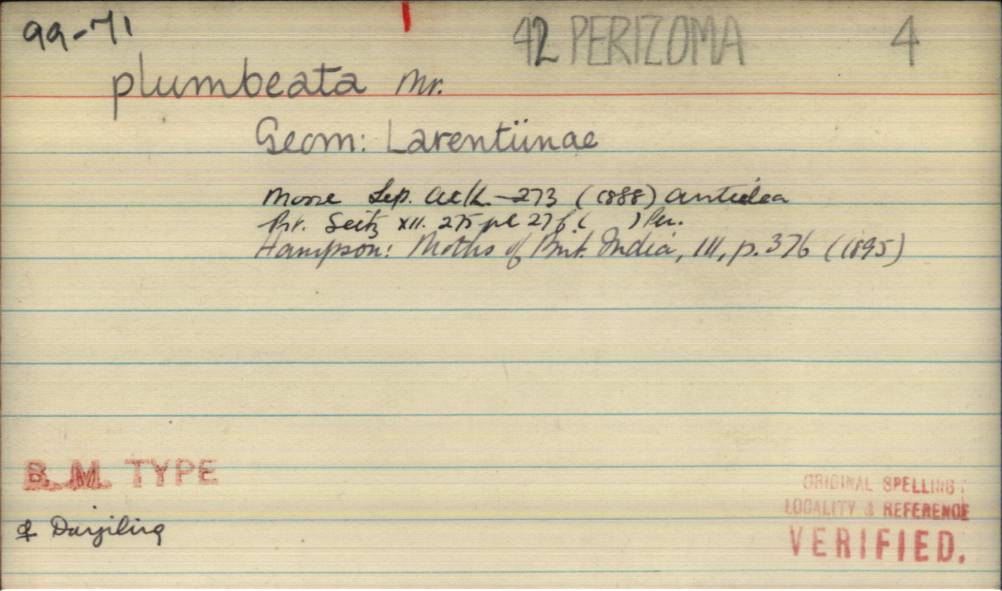 99-71 42 PERIZOMA 4
plumbeata Mr.
Geom: Larentiinae
Moore Lep. Atk. 273 (1888) Anticlea
Prt. Seitz XII. 275 pl 27 f. ( ) Per.
Hampson: Moths of Brit. India, III, p. 376 (1895)
B. M. TYPE
Darjiling
ORIGINAL SPELLING:
LOCALITY & REFERENCE
VERIFIED.